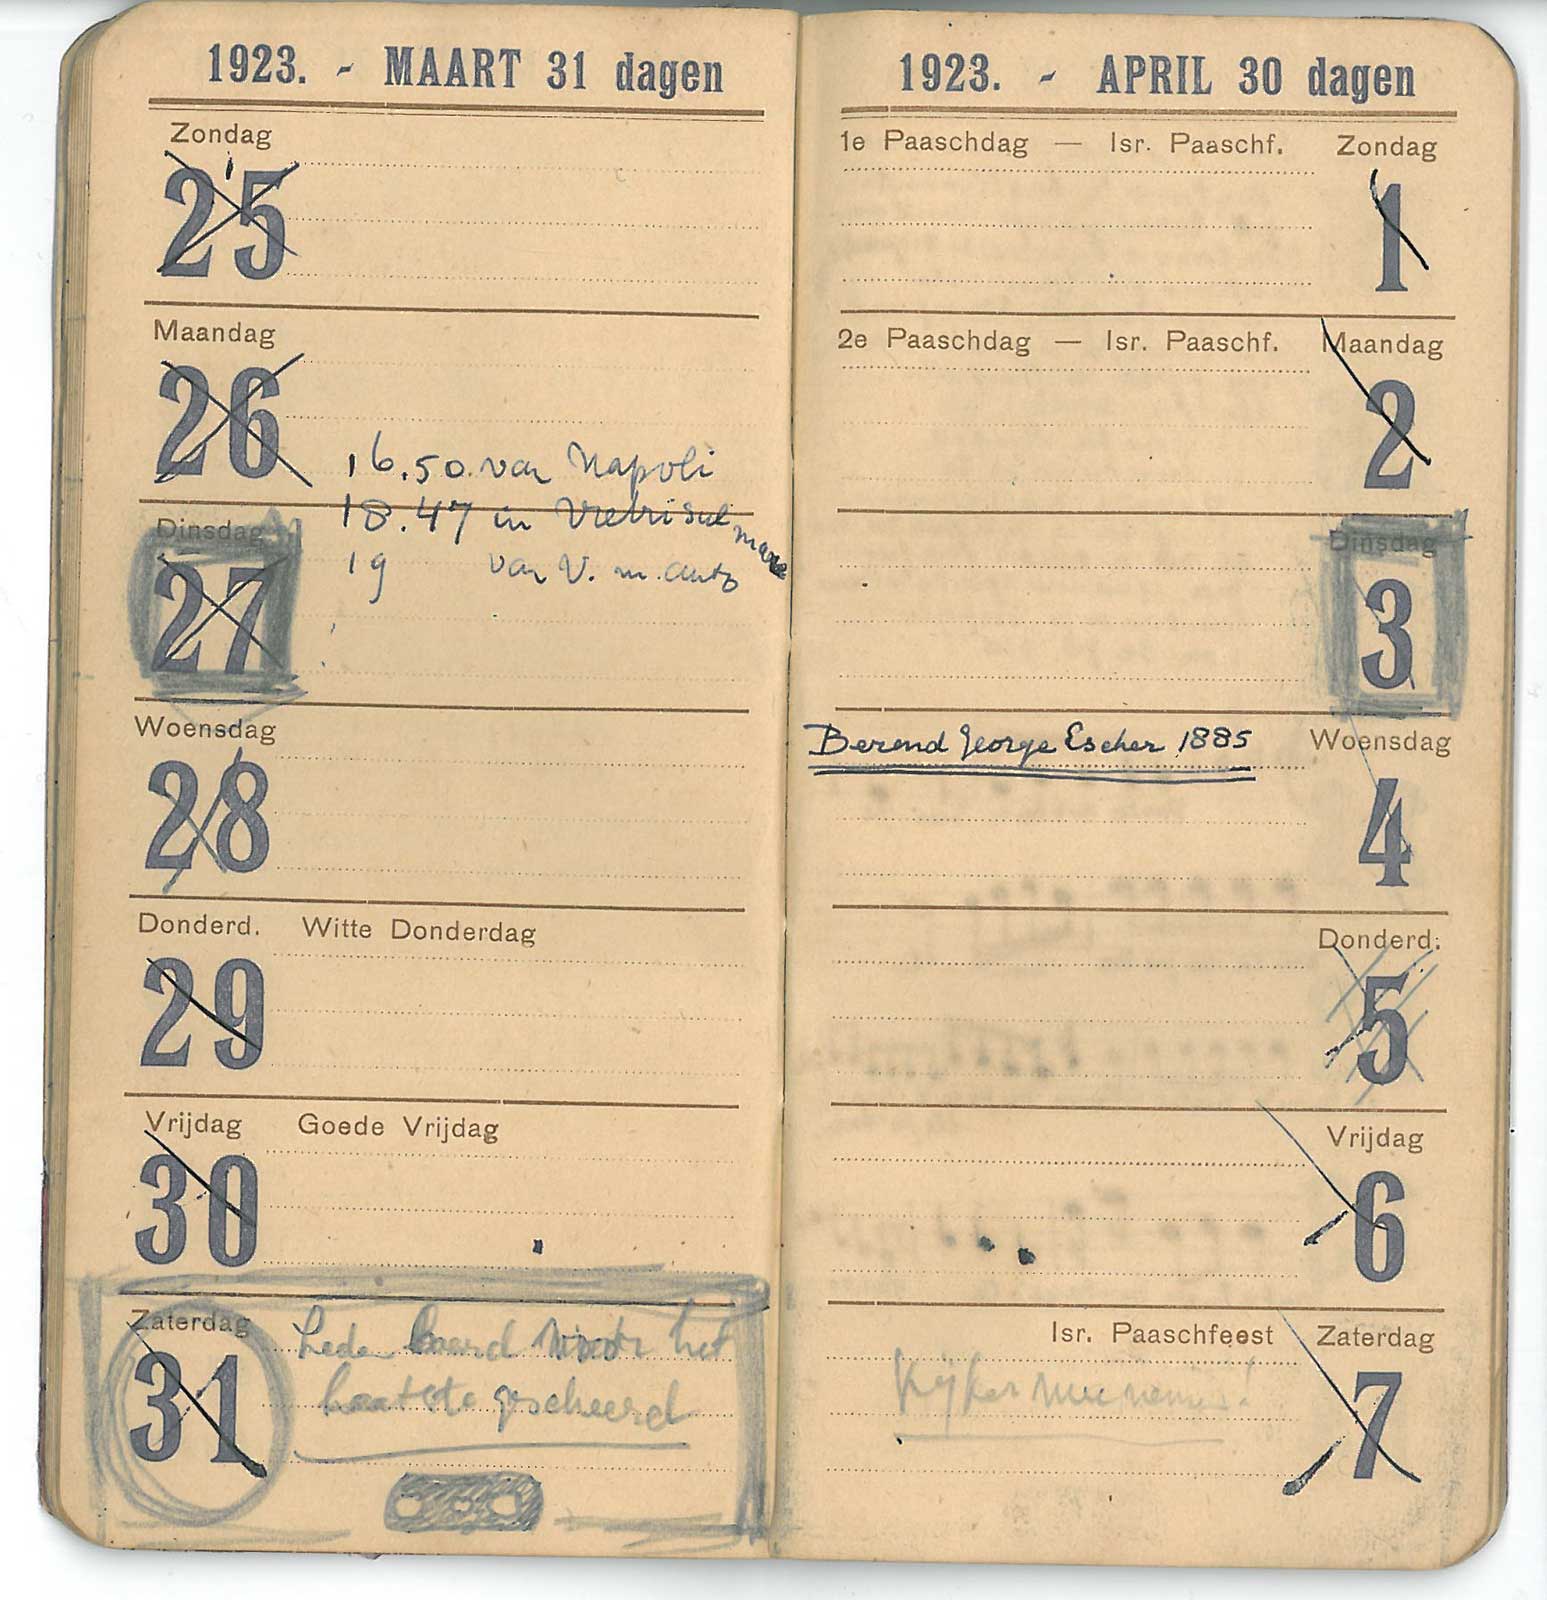 1923. - MAART 31 dagen
Zondag
25
Maandag
26
16.50 van Napoli
18.47 in Vietri sul
mare
Dinsdag
27
19 van V. m. auto
Woensdag
28
Donderd. Witte Donderdag
29
Vrijdag Goede Vrijdag
30
Zaterdag
31
baard voor het
laatste gescheerd
1923. - APRIL 30 dagen
1e Paaschdag — Isr. Paaschf. Zondag
1
2e Paaschdag — Isr. Paaschf. Maandag
2
Dinsdag
3
Berend George Escher 1885 Woensdag
4
Donderd.
5
Vrijdag
6
Isr. Paaschfeest Zaterdag
Kijker meenemen!
7